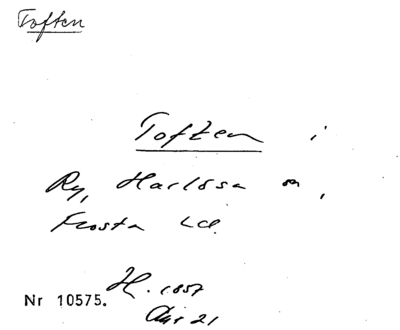 Toften
Toften i
Ry, Harlösa sn,
Frosta hd.
H. 1857
Nr 10575.
21